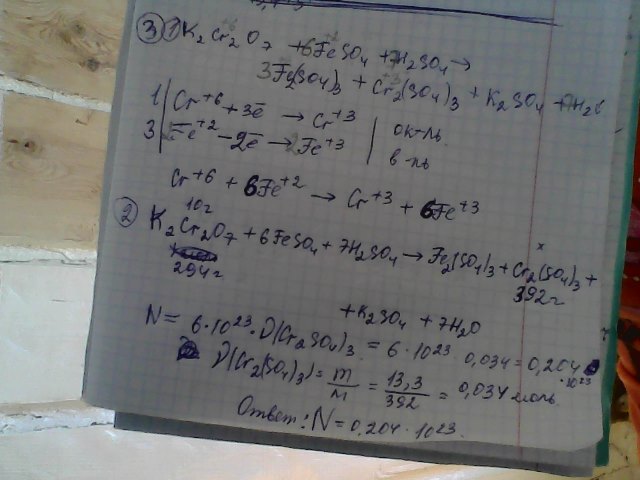 ③ ① K₂Cr₂O₇ + 6FeSO₄ + 7H₂SO₄ →
3Fe₂(SO₄)₃ + Cr₂(SO₄)₃ + K₂SO₄ + 7H₂O
1 | Cr⁺⁶ + 3ē → Cr⁺³ | ок-ль
3 | Fe⁺² - 2ē → 2Fe⁺³ | в-ль
Cr⁺⁶ + 6Fe⁺² → Cr⁺³ + 6Fe⁺³
10г x
② K₂Cr₂O₇ + 6FeSO₄ + 7H₂SO₄ → Fe₂(SO₄)₃ + Cr₂(SO₄)₃ +
294г 392г
+ K₂SO₄ + 7H₂O
N = 6·10²³·D(Cr₂SO₄)₃ = 6·10²³ 0,034 = 0,204
·10²³
D(Cr₂(SO₄)₃) = m/M = 13,3/392 = 0,034 моль
Ответ: N = 0,204·10²³.